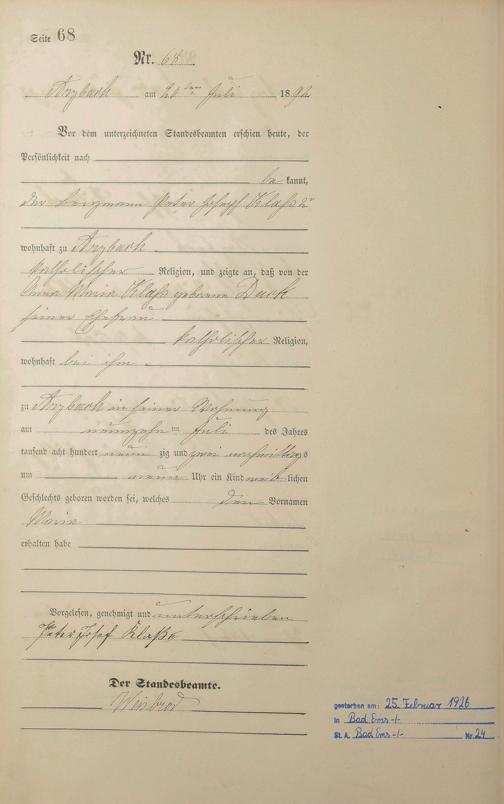 Seite 68
Nr. 68.
Arzbach am 20ten Juli 1892
Vor dem unterzeichneten Standesbeamten erschien heute, der
Persönlichkeit nach
be kannt,
der Bergmann Peter Joseph Klaß 2r
wohnhaft zu Arzbach
katholischer Religion, und zeigte an, daß von der
Anna Maria Klaß geborene
seiner Ehefrau
katholischer Religion,
wohnhaft bei ihm
zu Arzbach in seiner Wohnung
am neunzehn ten Juli des Jahres
tausend acht hundert neun zig und zwei nachmittags
um neun Uhr ein Kind weib lichen
Geschlechts geboren worden sei, welches den Vornamen
Maria
erhalten habe
Vorgelesen, genehmigt und unterschrieben
Peter Josef Klaß
Der Standesbeamte.
gestorben am: 25. Februar 1926
in Bad Ems -/-
St. A. Bad Ems -/- Nr. 24